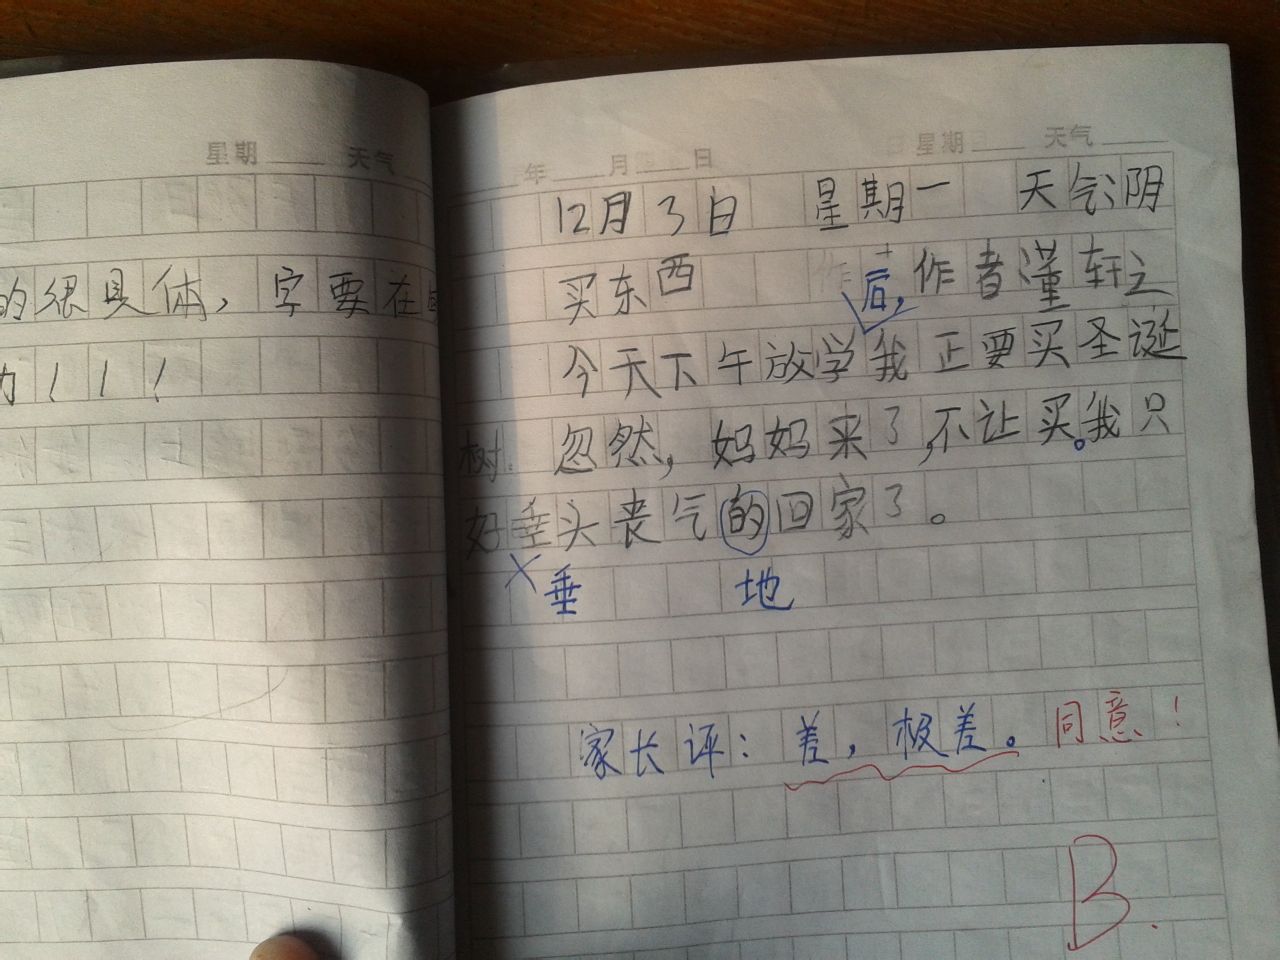 星期 天气
的很具体，字要在
！！！
年 月 日 星期 天气
12月3日 星期一 天气：阴
买东西 作者董轩之
后，
今天下午放学我正要买圣诞
树。忽然，妈妈来了，不让买。我只
好垂头丧气的回家了。
垂 地
家长评：差，极差。同意！
B.